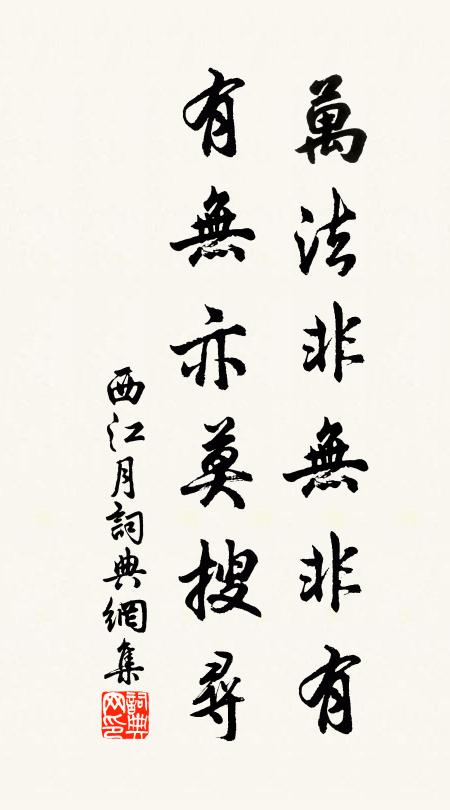 萬法非無非有
有無亦莫搜尋
西江月詞典網集
詞典网印